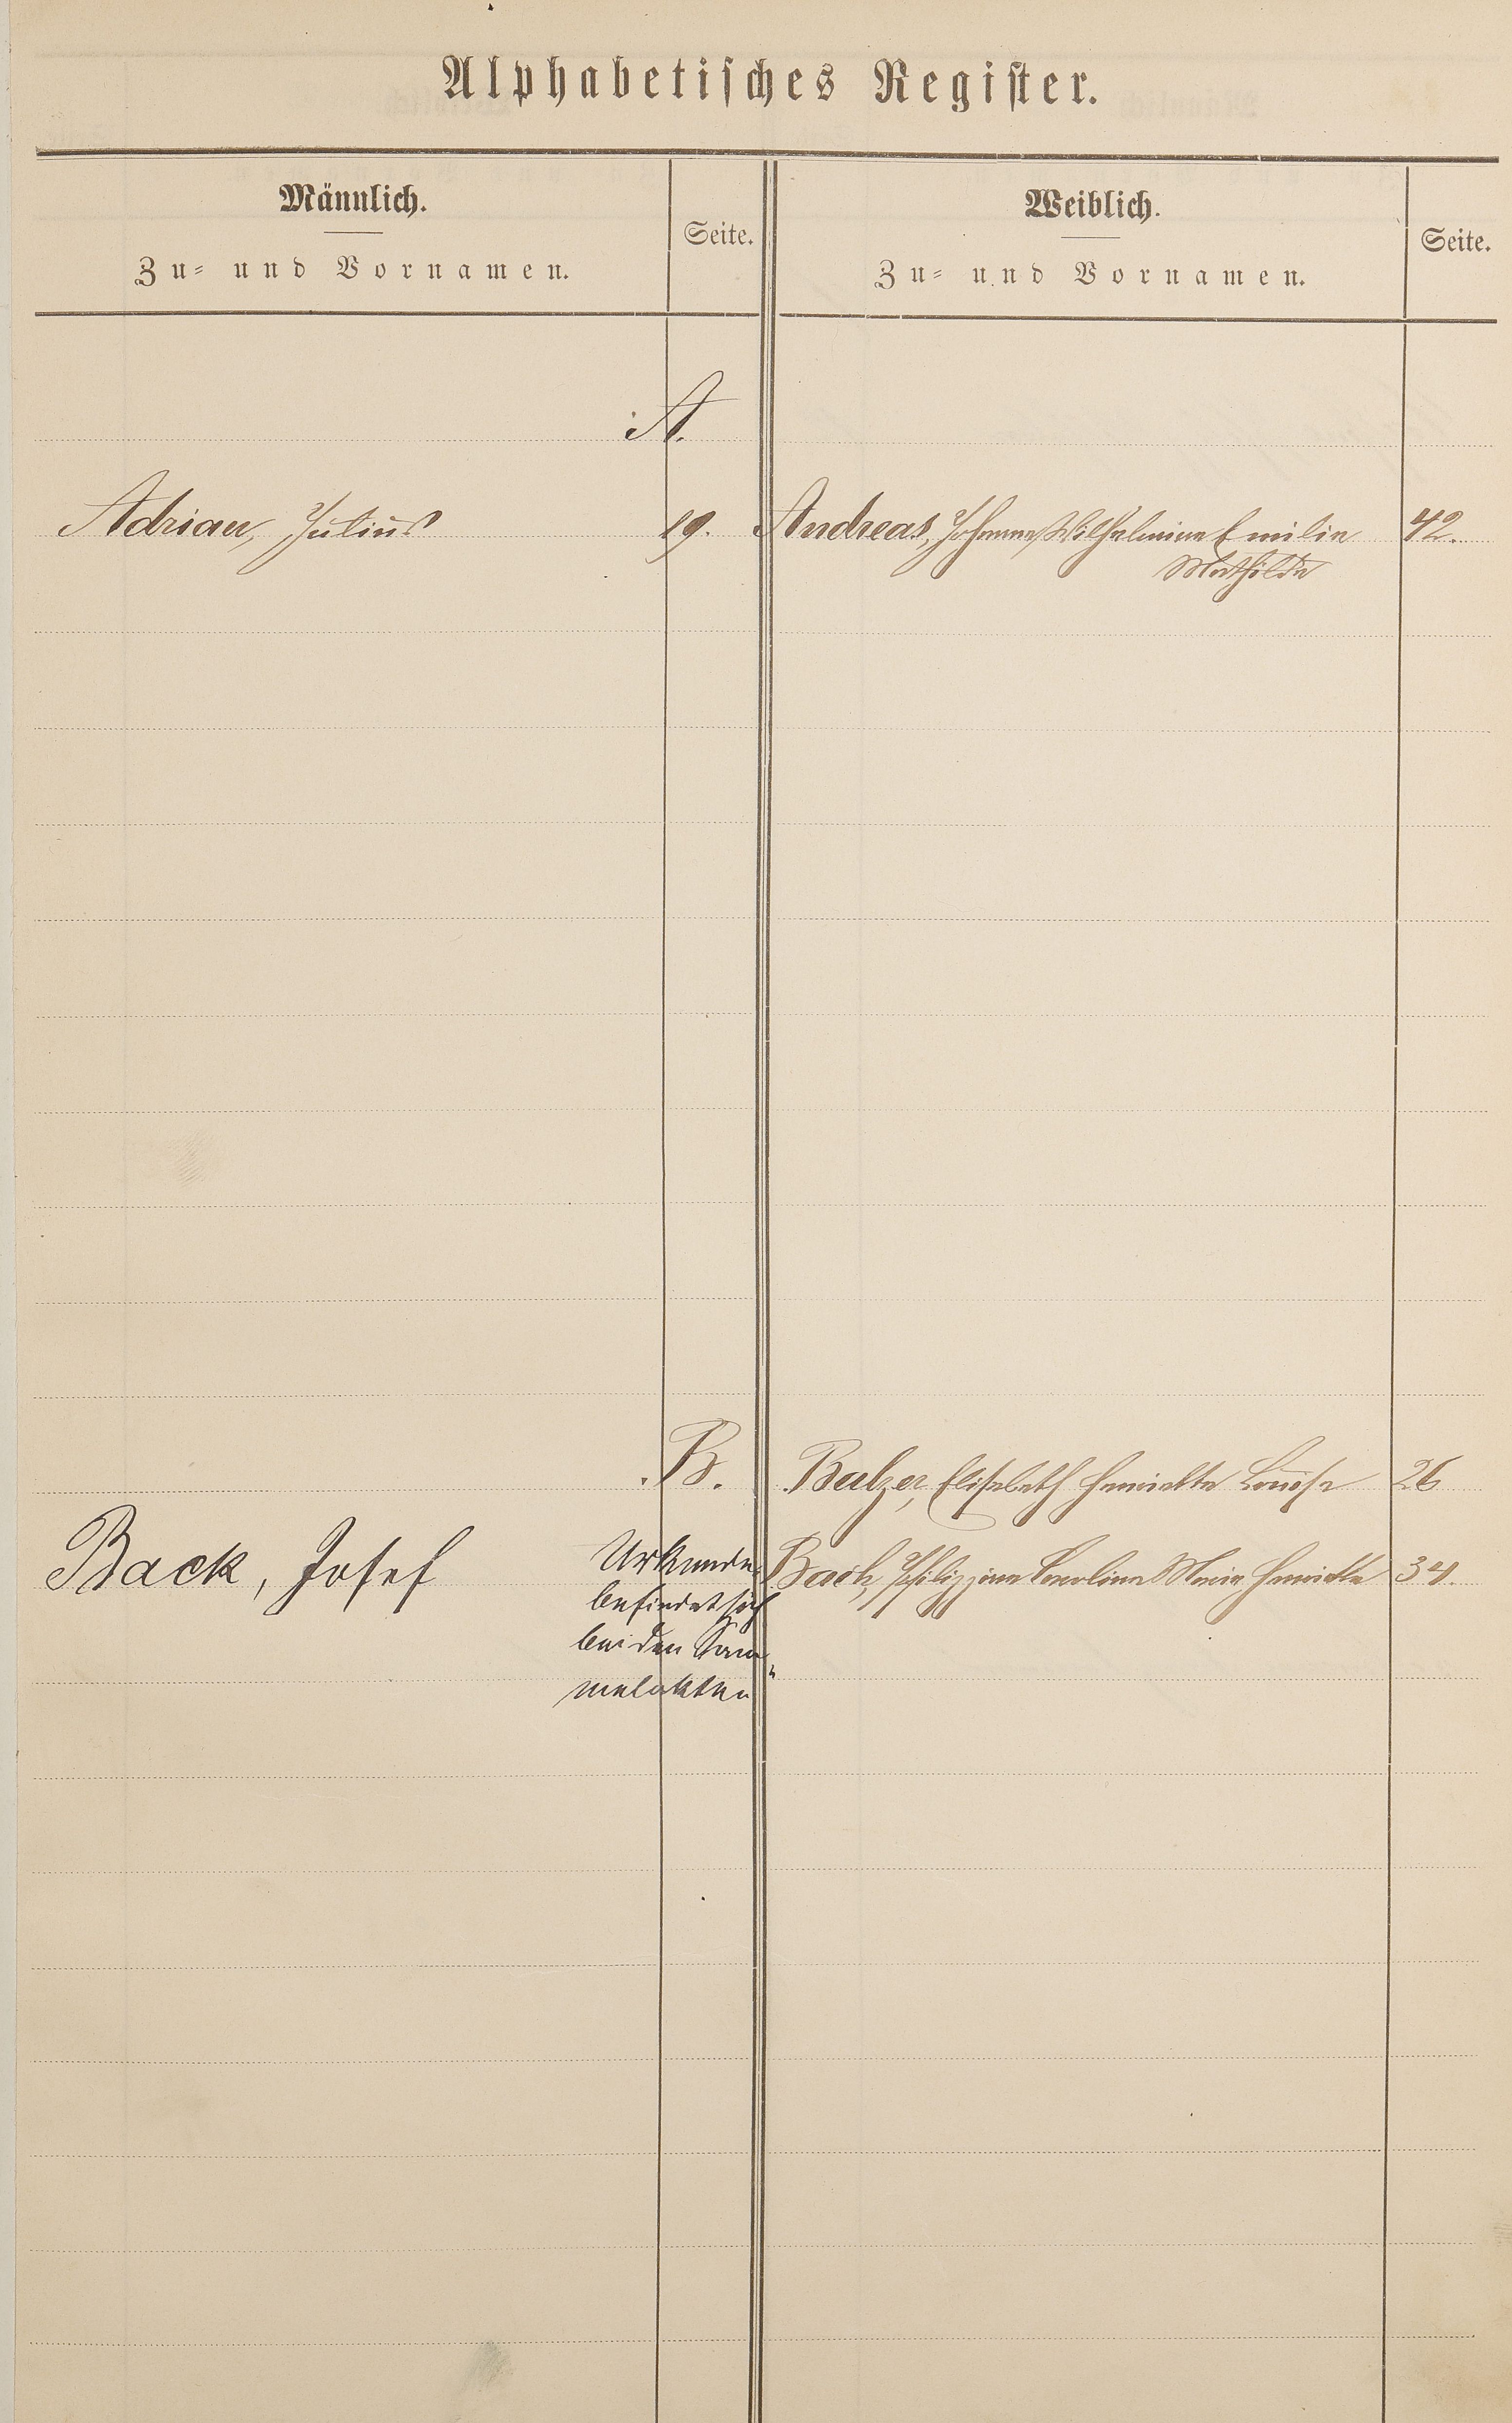 Alphabetisches Register.
Männlich.
Zu- und Vornamen.
Seite.
Weiblich.
Zu- und Vornamen.
Seite.
A.
Adrian, Julius 19.
Andreas, Johanna Wilhelmine Emilie 42.
Mathilde
B.
Balzer, Elisabeth Henriette Louise 26
Back, Josef
Urkunde
befindet sich
bei den Sam-
melakten
Bach, Philippine Karoline Maria Henriette 34.